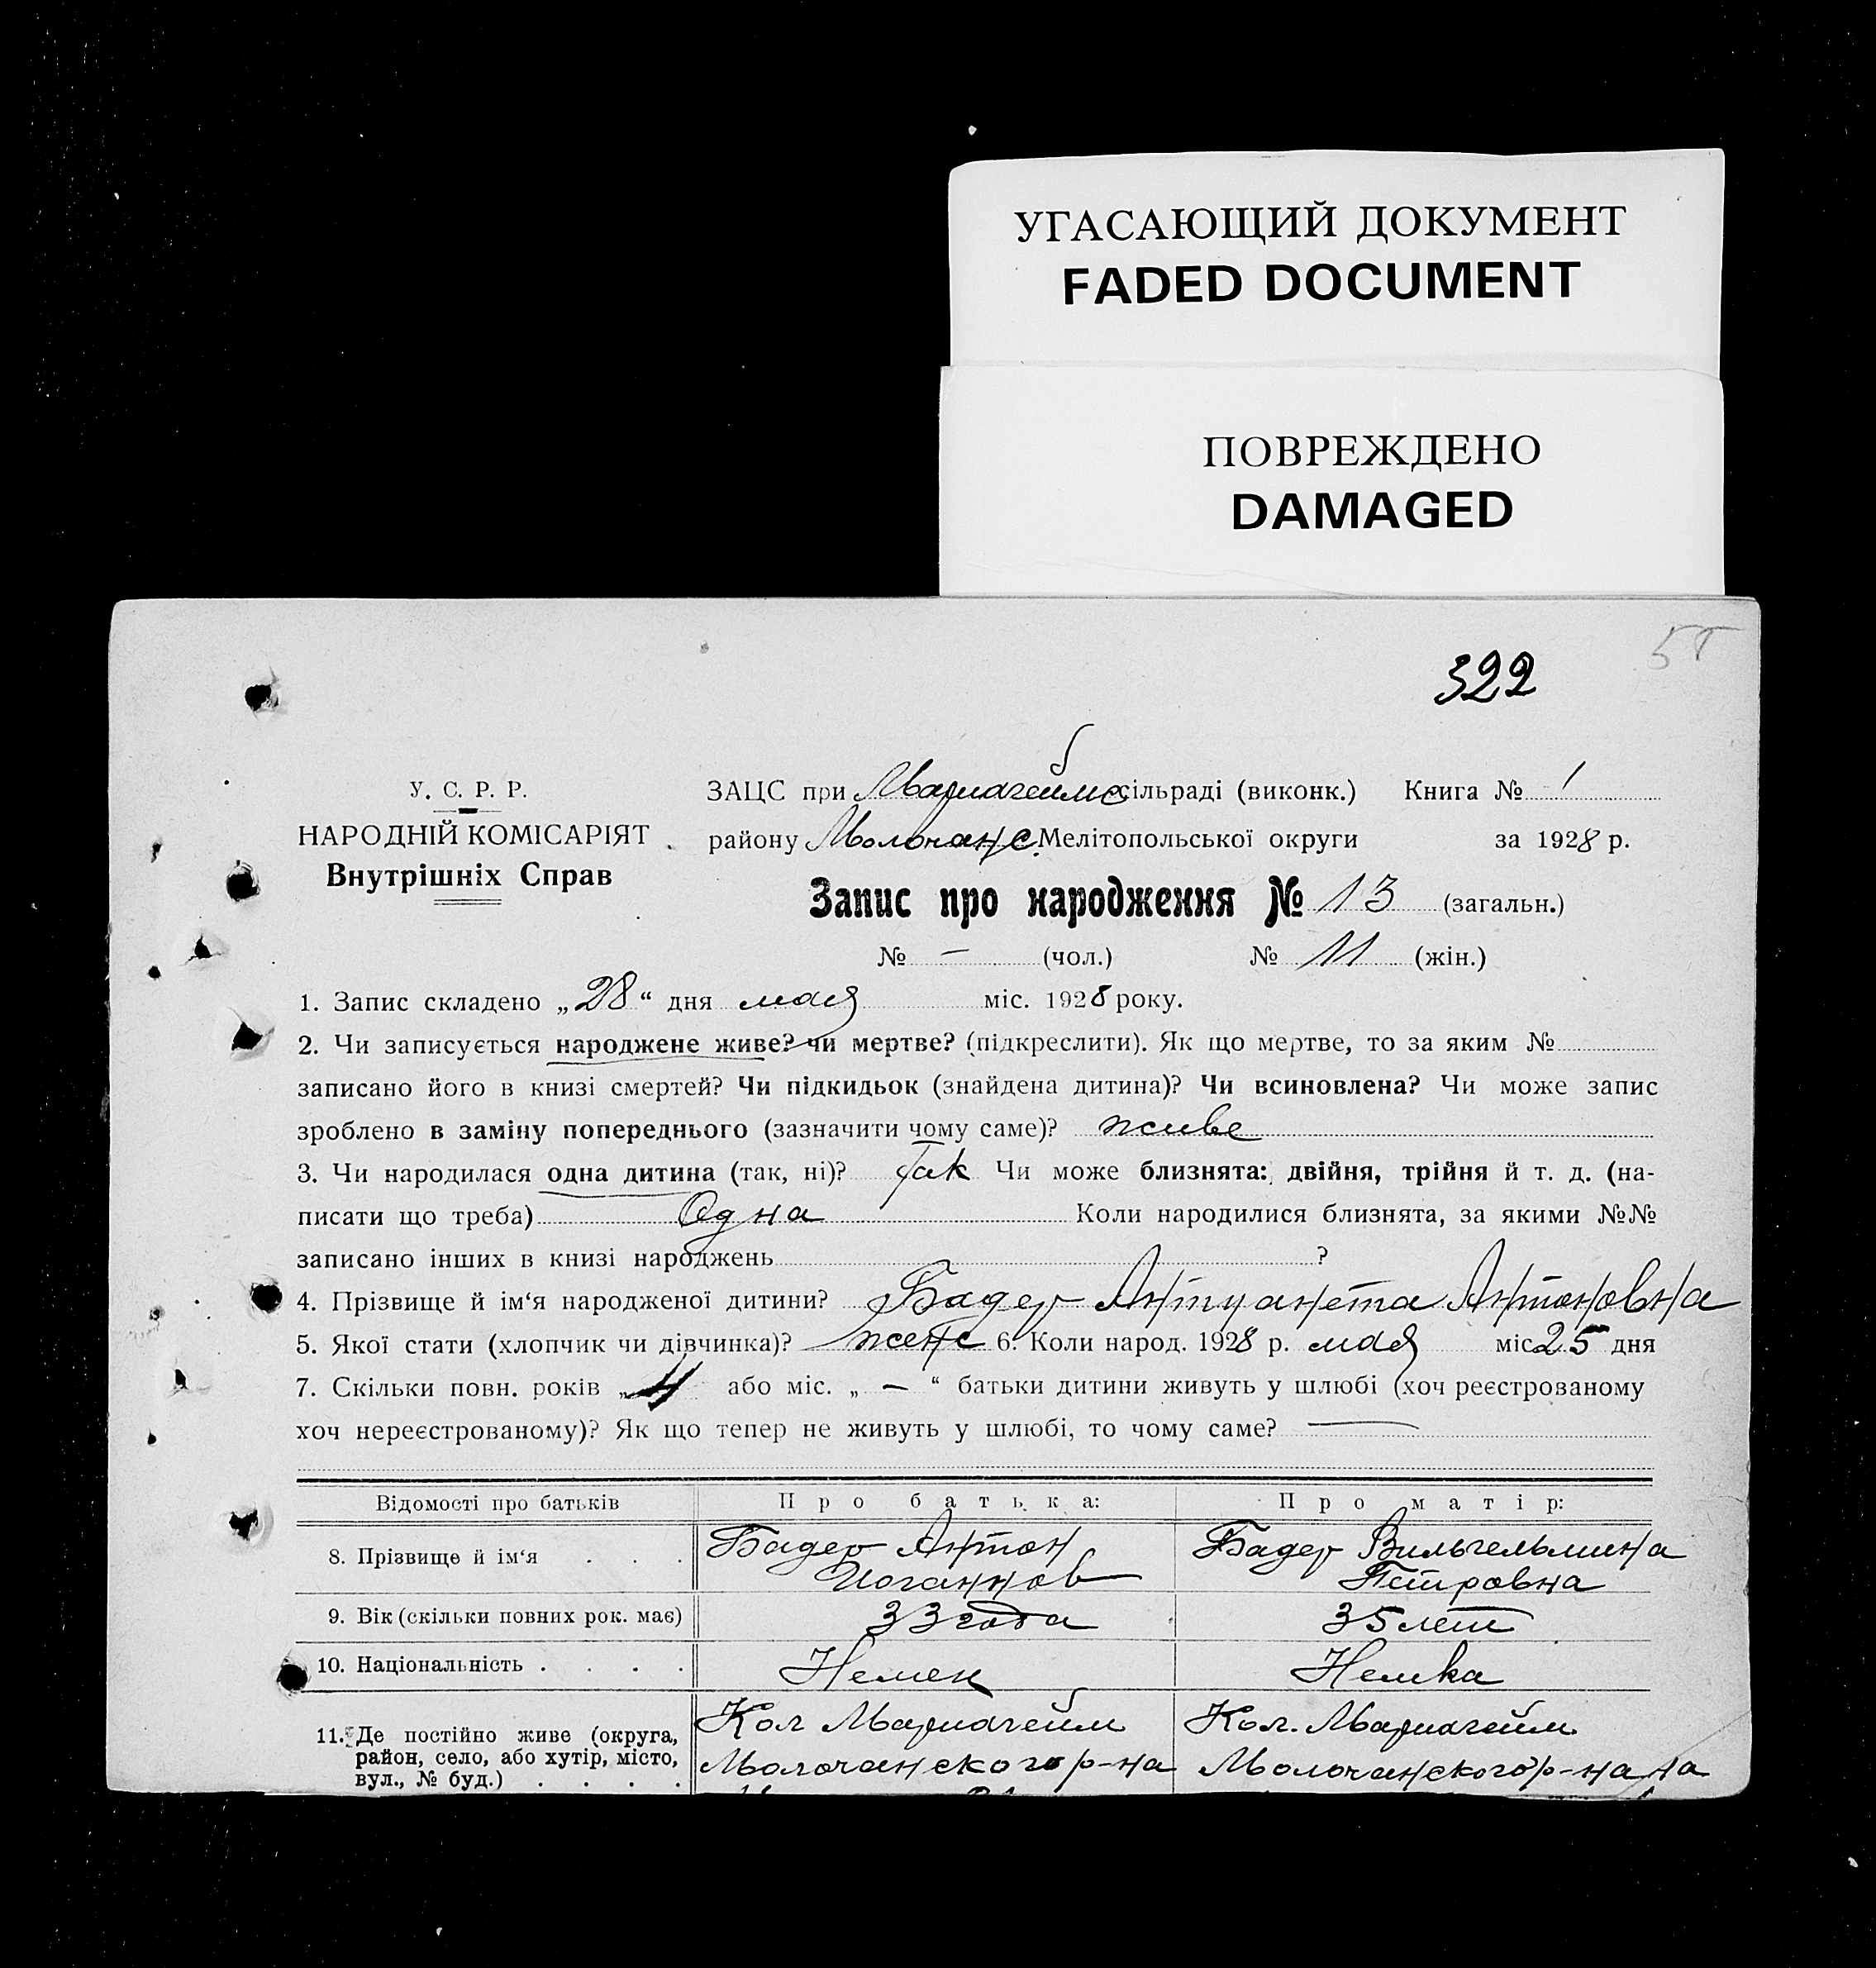 УГАСАЮЩИЙ ДОКУМЕНТ
FADED DOCUMENT
ПОВРЕЖДЕНО
DAMAGED
322
У. С. Р. Р.
НАРОДНІЙ КОМІСАРІЯТ
Внутрішніх Справ
ЗАЦС при Мариагеймс сільраді (виконк.) Книга № 1
району Молочанс. Мелітопольської округи за 1928 р.
Запис про народження № 13 (загальн.)
№ — (чол.) № 11 (жін.)
1. Запис складено „28“ дня мая міс. 1928 року.
2. Чи записується народжене живе? чи мертве? (підкреслити). Як що мертве, то за яким №
записано його в книзі смертей? Чи підкидьок (знайдена дитина)? Чи всиновлена? Чи може запис
зроблено в заміну попереднього (зазначити чому саме)? живе
3. Чи народилася одна дитина (так, ні)? так Чи може близнята: двійня, трійня й т. д. (на-
писати що треба) Одна Коли народилися близнята, за якими №№
записано інших в книзі народжень ?
4. Прізвище й ім‘я народженої дитини? Бадер Антуанета Антоновна
5. Якої стати (хлопчик чи дівчинка)? женс 6. Коли народ. 1928 р. мая міс. 25 дня
7. Скільки повн. років „4 або міс. „ — “ батьки дитини живуть у шлюбі (хоч реєстрованому
хоч нереєстрованому)? Як що тепер не живуть у шлюбі, то чому саме? —
Відомості про батьків Про батька: Про матір:
8. Прізвище й ім‘я . . . Бадер Антон Иоганнов Бадер Вильгельмина Петровна
9. Вік (скільки повних рок. має) 33 года 35 лет
10. Національність . . . . Немец Немка
11. Де постійно живе (округа, район, село, або хутір, місто, вул., № буд.) . . . . Кол Мариагейм Молочанского р-на Кол. Мариагейм Молочанского р-на